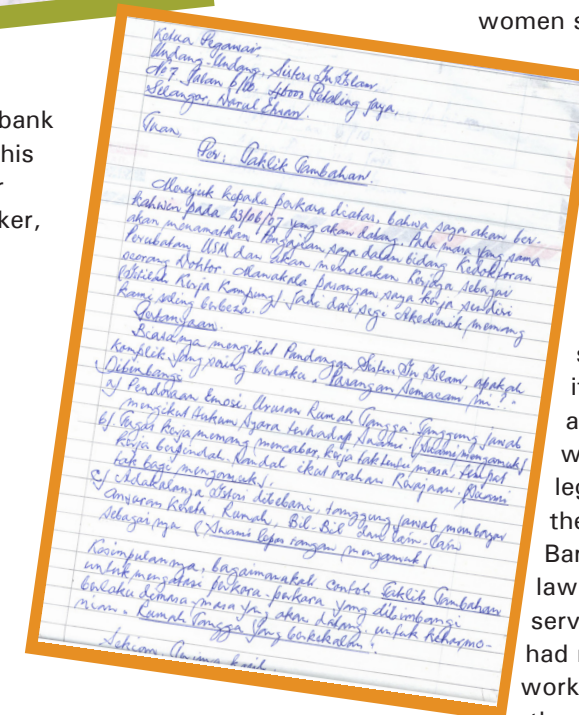 women s
bank
his
r
ker,
Ketua Pegawai,
Undang-Undang, Sisters In Islam
No 7 Jalan 6/10, Petaling Jaya,
Selangor, Darul Ehsan.
Tuan,
Per: Taklik Tambahan.
Merujuk kepada perkara diatas, bahwa saya akan ber-
kahwin pada 23/06/07 yang akan datang. Pada masa yang sama
akan menamatkan Pengajian saya dalam bidang Kedoktoran
Perubatan USM dan akan memulakan Kerjaya sebagai
seorang Doktor. Manakala pasangan saya kerja sendiri
(Istilah Kerja Kampung) Jadi dari segi Akedemik memang
kami saling berbeza.
Pertanyaan.
Biasanya mengikut Pandangan Sisters In Islam, apakah
Konflik yang sering berlaku. Pasangan semacam ini?.
Dibimbangi
a) Penderaan Emosi, Urusan Rumah Tangga. Tanggung jawab
mengikut Hukum Agama terhadap Suami. (Suami mengamuk)
b) Tugas kerja memang mencabar, kerja tak tentu masa, tempat
kerja berpindah randah ikut arahan Kerajaan. (Suami
tak bagi mengamuk).
c) Adakalanya Isteri dibebani, tanggung jawab membayar
ansuran Kereta, Rumah, Bil-Bil dan lain-lain
sebagainya (Suami lepas tangan mengamuk)
Kesimpulannya, bagaimanakah contoh Taklik Tambahan
untuk mengatasi perkara-perkara yang dibimbangi
berlaku dimasa masa yg akan datang, untuk keharmo-
nian. Rumah Tangga yang berkekalan?
Sekian, terima kasih
s
it
a
w
leg
the
Bar
law
serv
had r
work